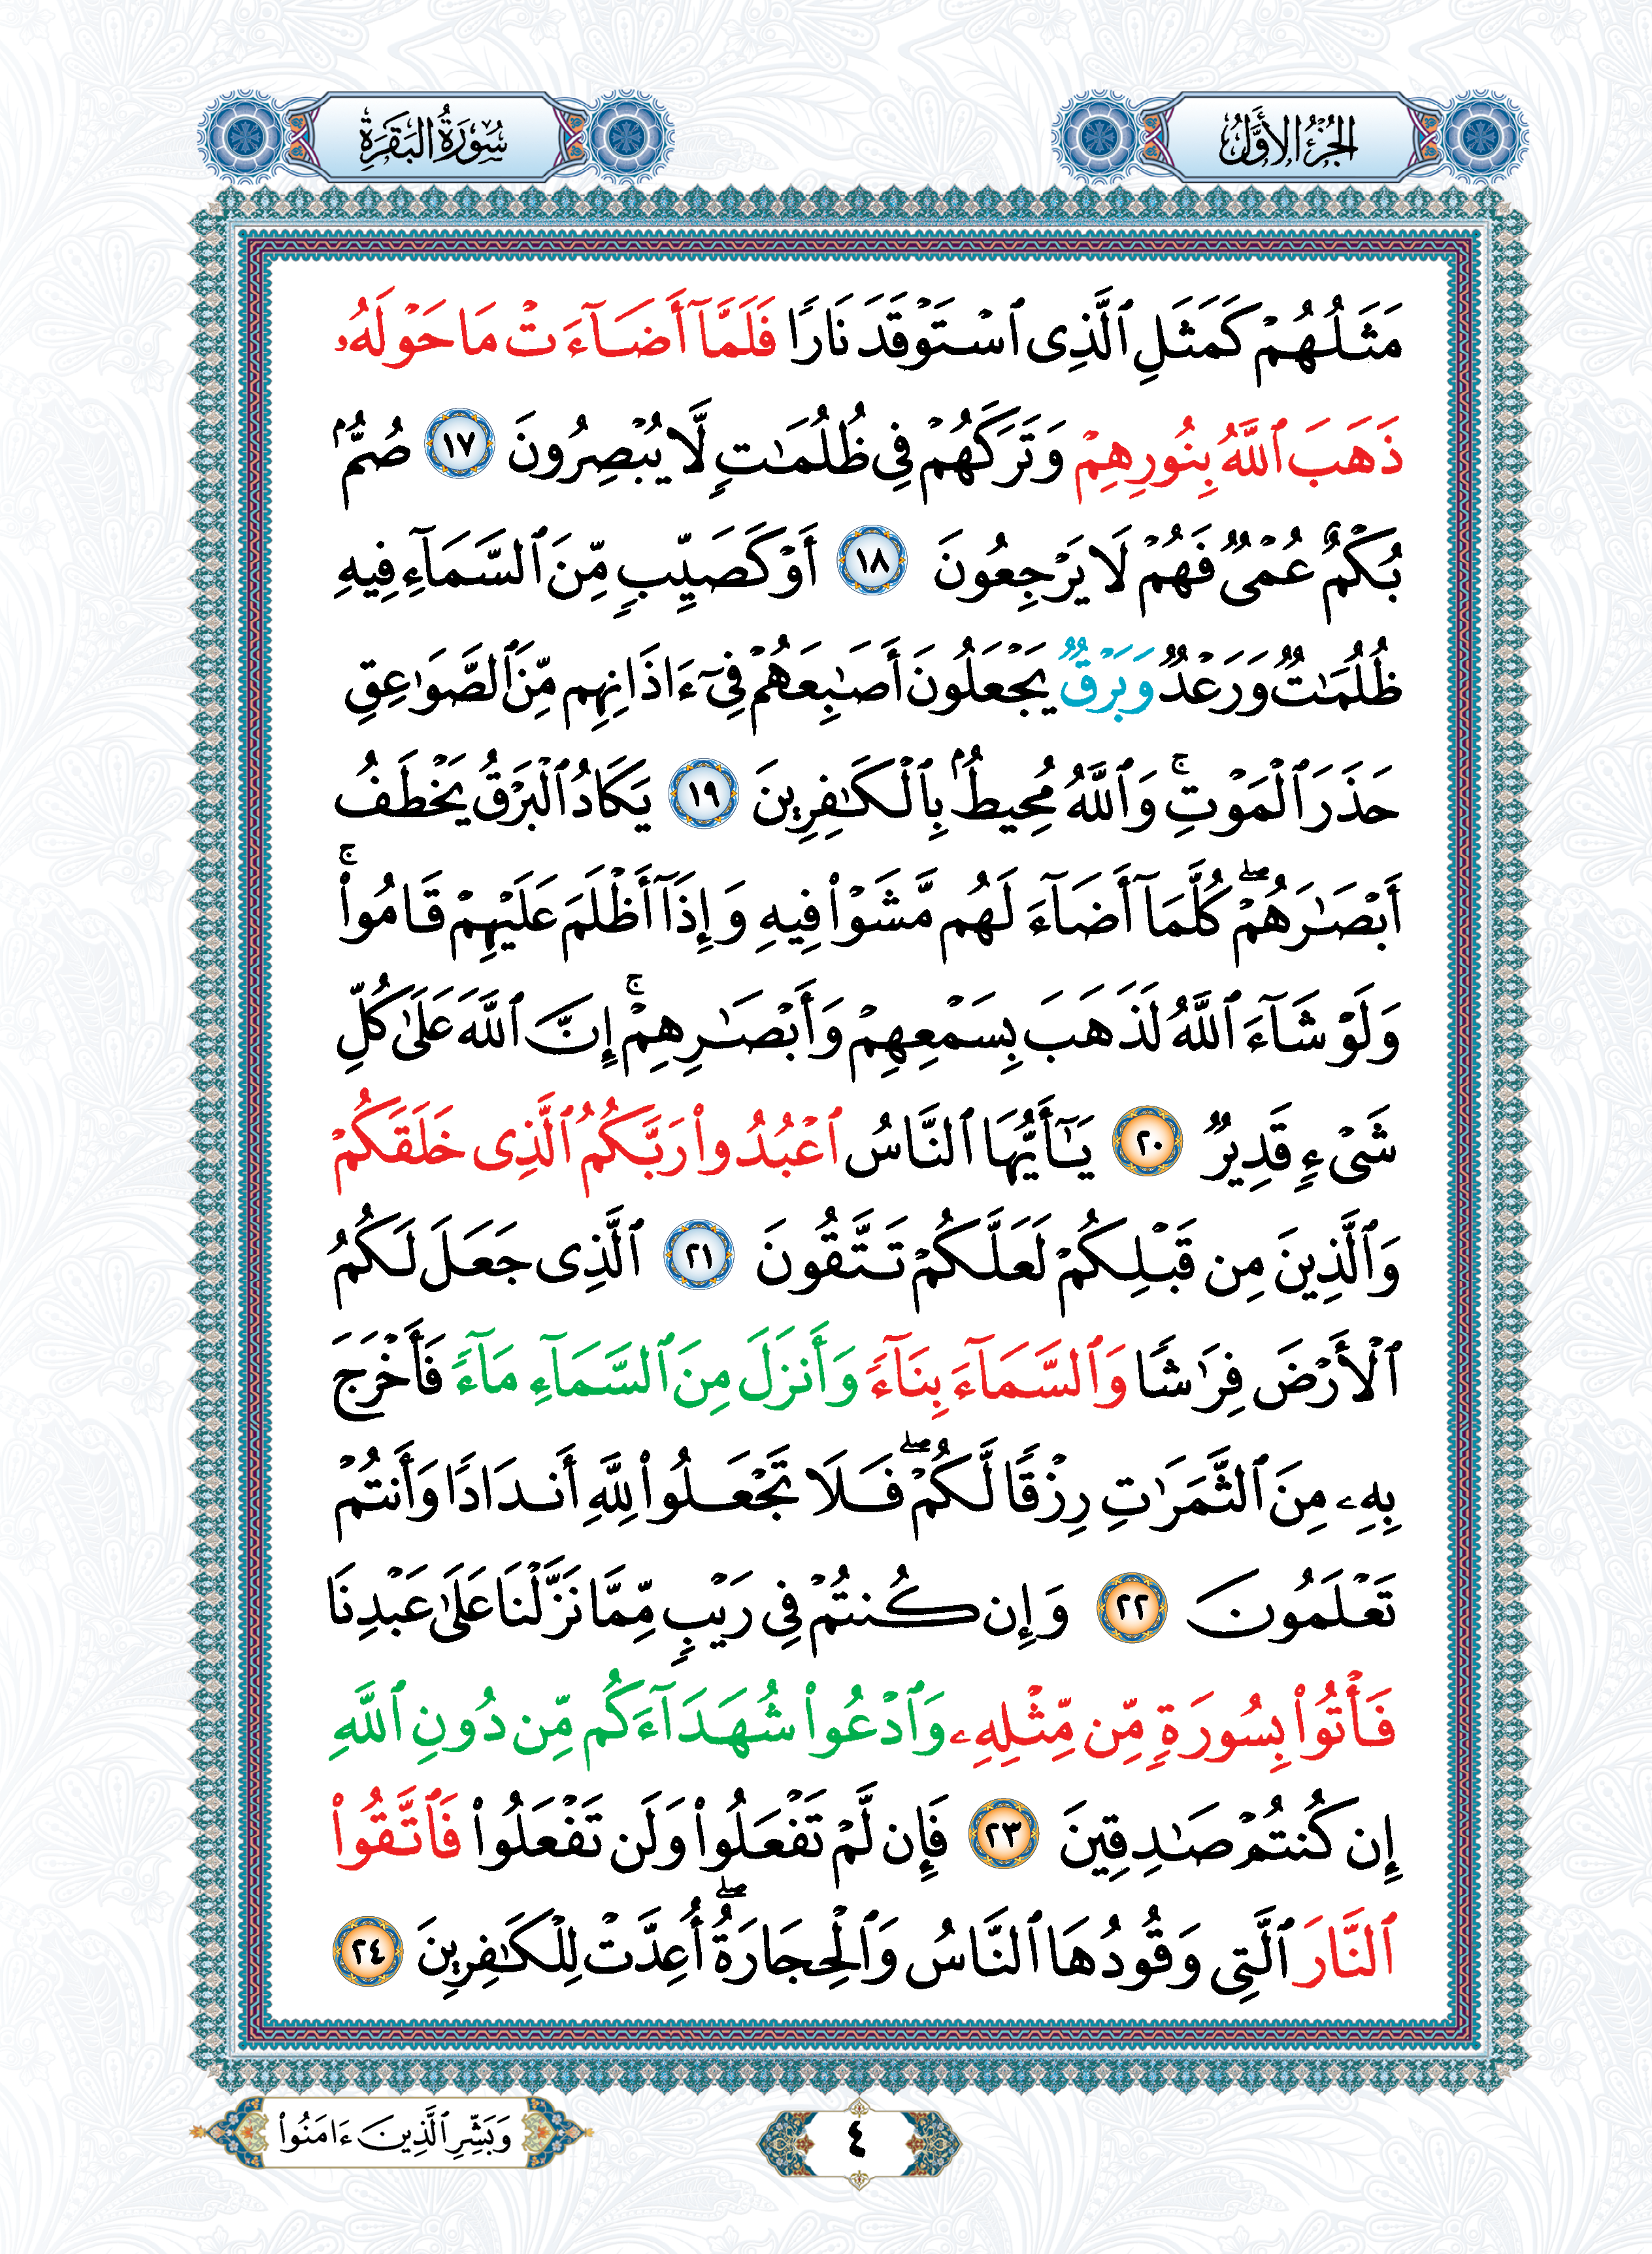 الجزء الأول
سورة البقرة
مَثَلُهُمْ كَمَثَلِ ٱلَّذِى ٱسْتَوْقَدَ نَارًا فَلَمَّآ أَضَآءَتْ مَا حَوْلَهُۥ
ذَهَبَ ٱللَّهُ بِنُورِهِمْ وَتَرَكَهُمْ فِى ظُلُمَـٰتٍ لَّا يُبْصِرُونَ ١٧ صُمٌّۢ
بُكْمٌ عُمْىٌ فَهُمْ لَا يَرْجِعُونَ ١٨ أَوْ كَصَيِّبٍ مِّنَ ٱلسَّمَآءِ فِيهِ
ظُلُمَـٰتٌ وَرَعْدٌ وَبَرْقٌ يَجْعَلُونَ أَصَـٰبِعَهُمْ فِىٓ ءَاذَانِهِم مِّنَ ٱلصَّوَٰعِقِ
حَذَرَ ٱلْمَوْتِ ۚ وَٱللَّهُ مُحِيطٌۢ بِٱلْكَـٰفِرِينَ ١٩ يَكَادُ ٱلْبَرْقُ يَخْطَفُ
أَبْصَـٰرَهُمْ ۖ كُلَّمَآ أَضَآءَ لَهُم مَّشَوْا۟ فِيهِ وَإِذَآ أَظْلَمَ عَلَيْهِمْ قَامُوا۟ ۚ
وَلَوْ شَآءَ ٱللَّهُ لَذَهَبَ بِسَمْعِهِمْ وَأَبْصَـٰرِهِمْ ۚ إِنَّ ٱللَّهَ عَلَىٰ كُلِّ
شَىْءٍ قَدِيرٌ ٢٠ يَـٰٓأَيُّهَا ٱلنَّاسُ ٱعْبُدُوا۟ رَبَّكُمُ ٱلَّذِى خَلَقَكُمْ
وَٱلَّذِينَ مِن قَبْلِكُمْ لَعَلَّكُمْ تَتَّقُونَ ٢١ ٱلَّذِى جَعَلَ لَكُمُ
ٱلْأَرْضَ فِرَٰشًا وَٱلسَّمَآءَ بِنَآءً وَأَنزَلَ مِنَ ٱلسَّمَآءِ مَآءً فَأَخْرَجَ
بِهِۦ مِنَ ٱلثَّمَرَٰتِ رِزْقًا لَّكُمْ ۖ فَلَا تَجْعَلُوا۟ لِلَّهِ أَندَادًا وَأَنتُمْ
تَعْلَمُونَ ٢٢ وَإِن كُنتُمْ فِى رَيْبٍ مِّمَّا نَزَّلْنَا عَلَىٰ عَبْدِنَا
فَأْتُوا۟ بِسُورَةٍ مِّن مِّثْلِهِۦ وَٱدْعُوا۟ شُهَدَآءَكُم مِّن دُونِ ٱللَّهِ
إِن كُنتُمْ صَـٰدِقِينَ ٢٣ فَإِن لَّمْ تَفْعَلُوا۟ وَلَن تَفْعَلُوا۟ فَٱتَّقُوا۟
ٱلنَّارَ ٱلَّتِى وَقُودُهَا ٱلنَّاسُ وَٱلْحِجَارَةُ ۖ أُعِدَّتْ لِلْكَـٰفِرِينَ ٢٤
٤
وَبَشِّرِ ٱلَّذِينَ ءَامَنُوا۟